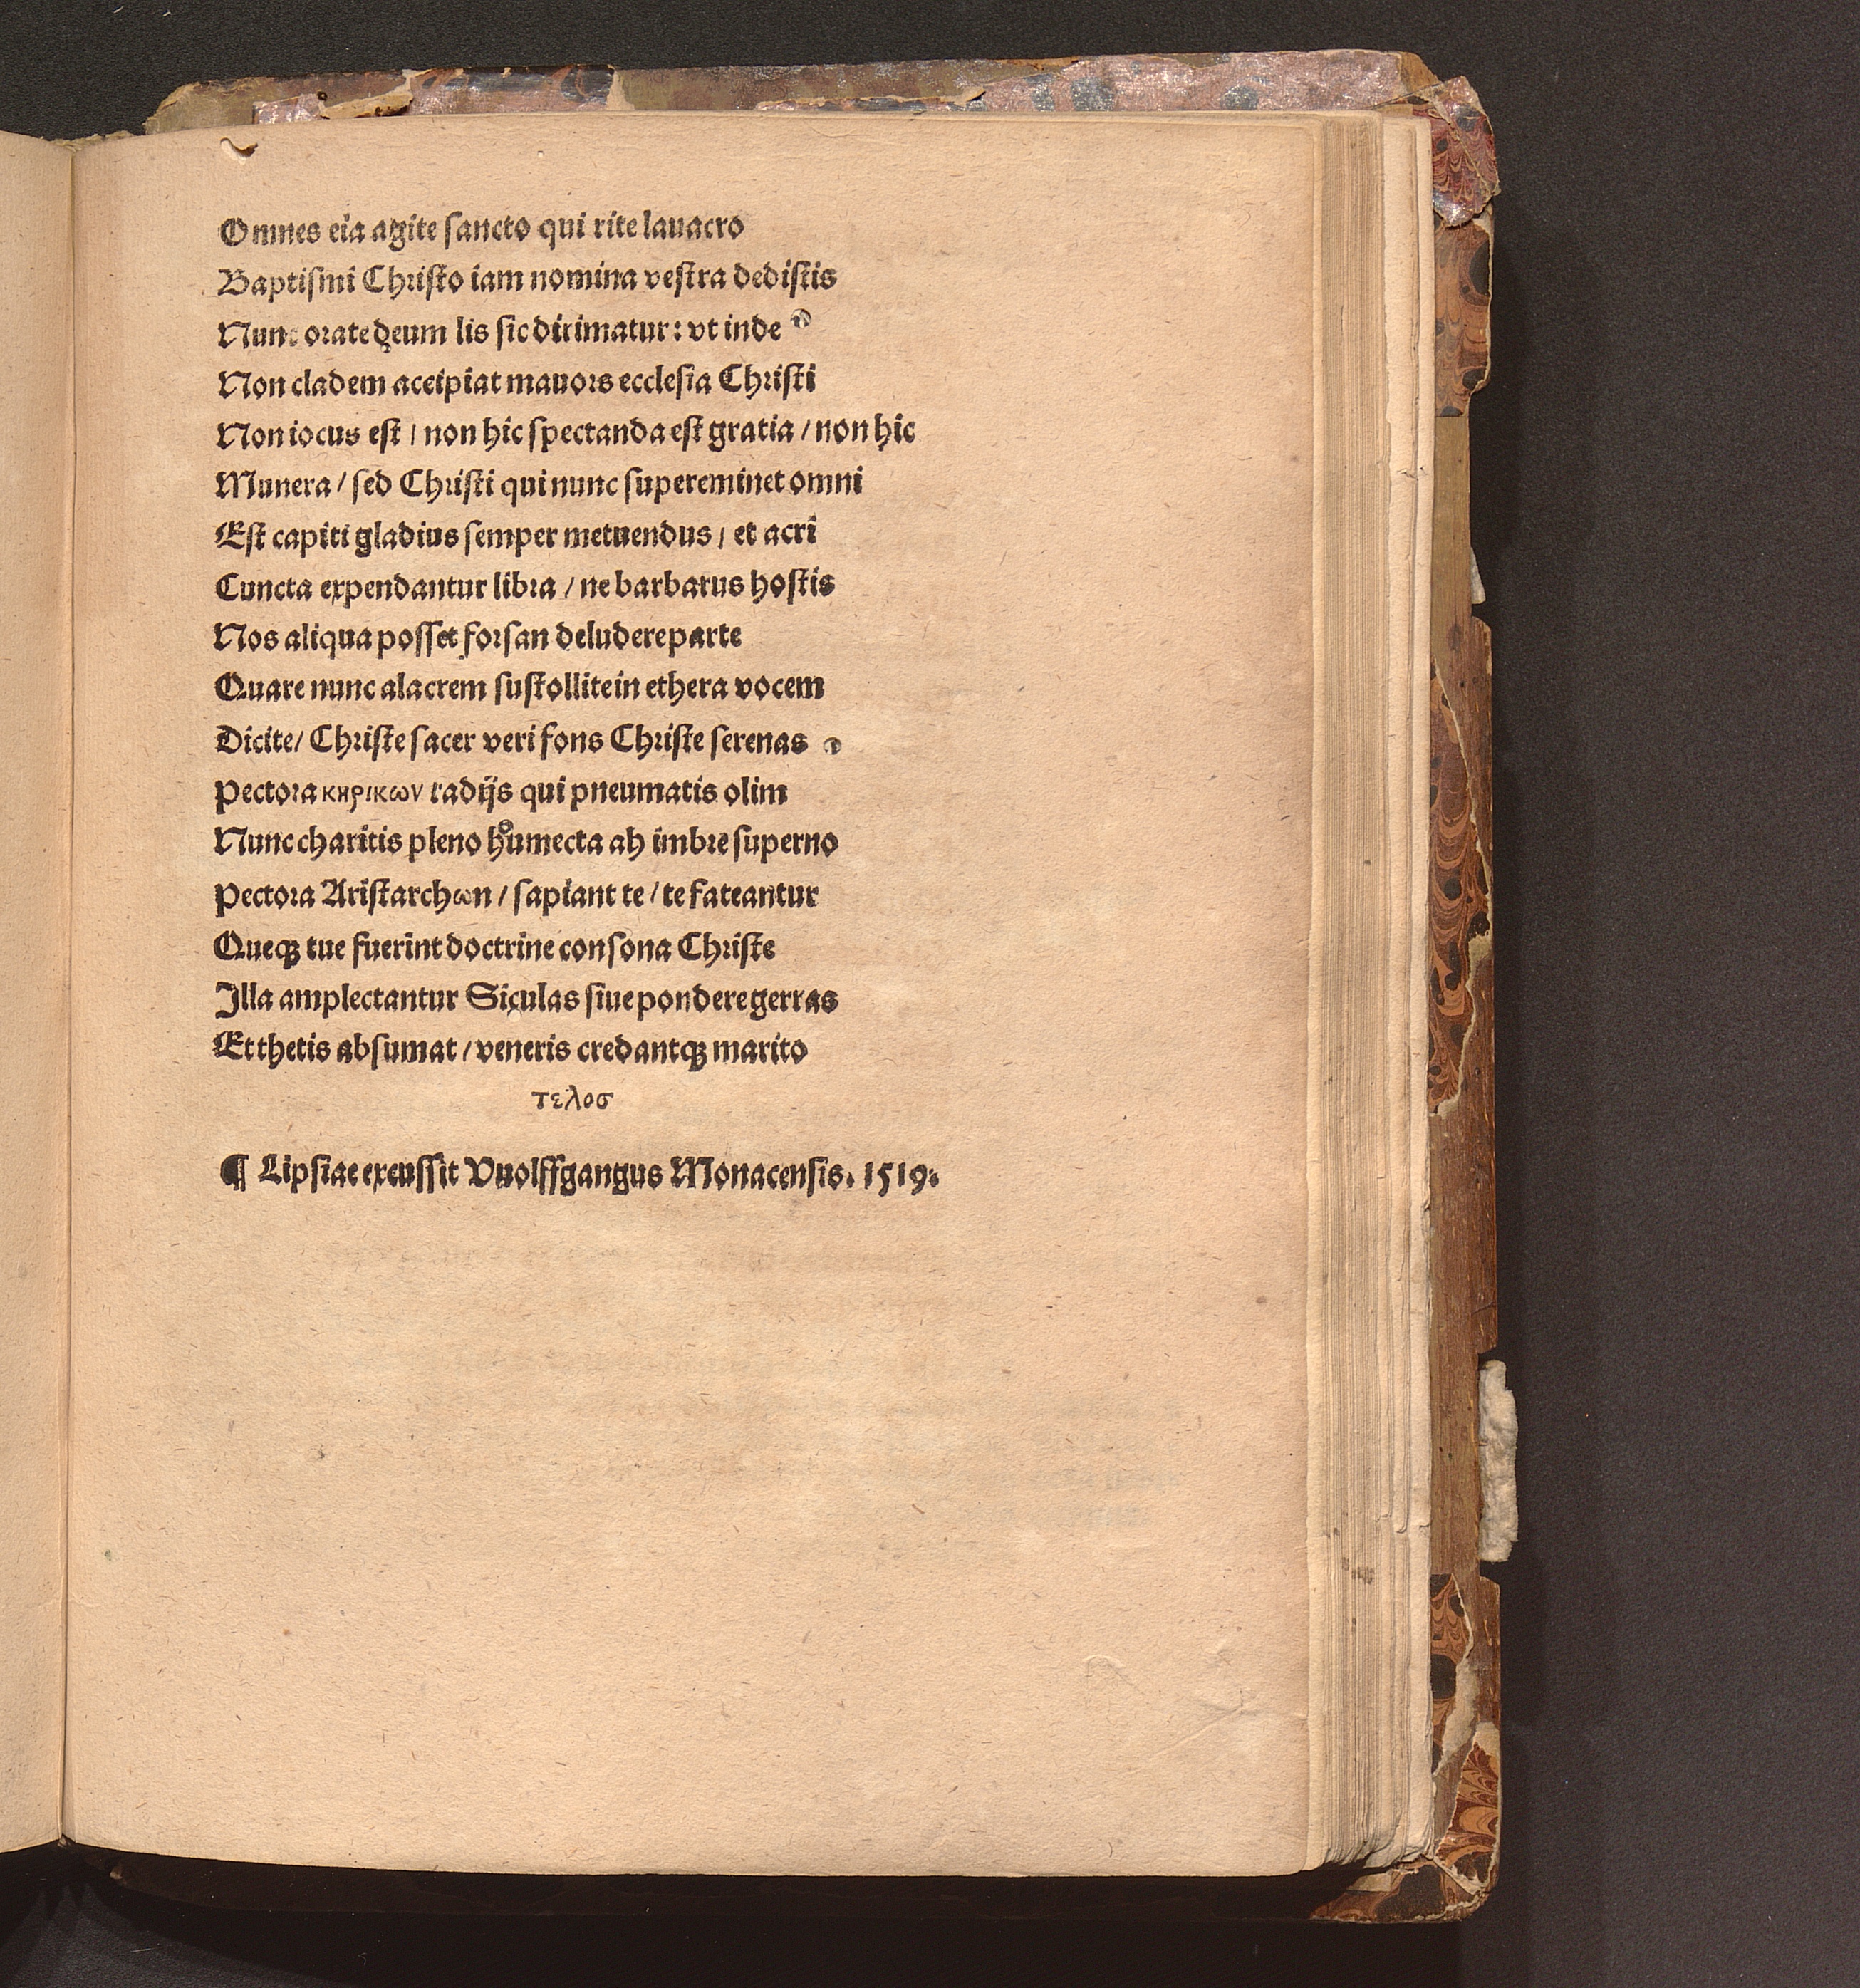 Omnes eia agite ſancto qui rite lauacro
Baptiſmi Chriſto iam nomina veſtra dediſtis
Nunc orate deum lis ſic dirimatur: vt inde
Non cladem aceipiat mauors eccleſia Chriſti
Non iocus eſt / non hic ſpectanda eſt gratia / non hic
Munera / ſed Chriſti qui nunc ſupereminet omni
Eſt capiti gladius ſemper metuendus / et acri
Cuncta expendantur libra / ne barbarus hoſtis
Nos aliqua poſſet forſan deludere parte
Quare nunc alacrem ſuſtollite in ethera vocem
Dicite / Chriſte ſacer veri fons Chriſte ſerenas
Pectora κηρικων radijs qui pneumatis olim
Nunc charitis pleno humecta ah imbre ſuperno
Pectora Ariſtarchωn / ſapiant te / te fateantur
Queqꝫ tue fuerint doctrine conſona Chriſte
Illa amplectantur Siculas ſiue pondere gerras
Et thetis abſumat / veneris credantqꝫ marito
τελοσ
¶ Lipſiae excuſſit Vuolffgangus Monacenſis. 1519.